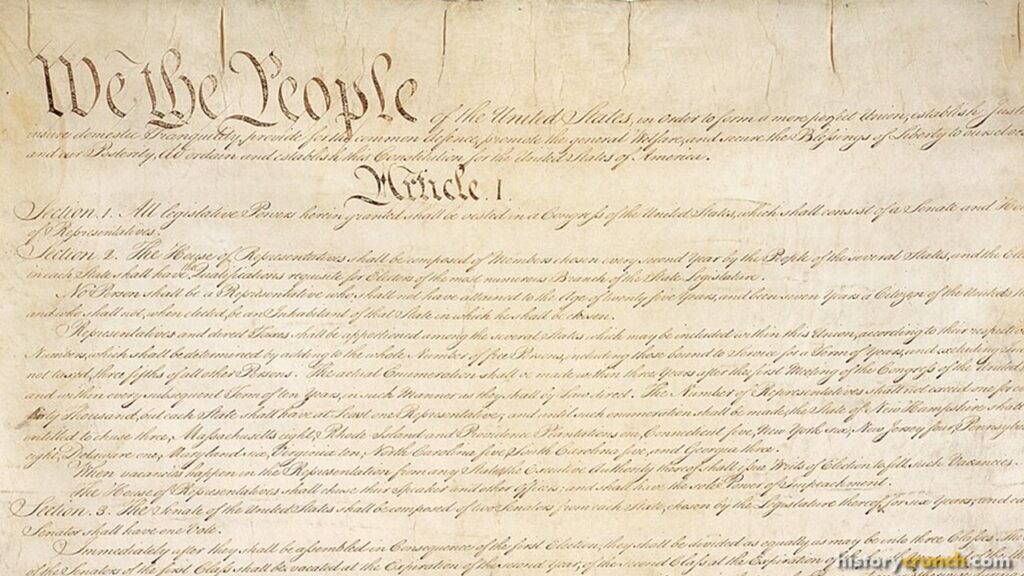 We the People of the United States, in Order to form a more perfect Union, establish Just
insure domestic Tranquility, provide for the common defence, promote the general Welfare, and secure the Blessings of Liberty to oursel
and our Posterity, do ordain and establish this Constitution for the United States of America.
Article. I.
Section. 1. All legislative Powers herein granted shall be vested in a Congress of the United States, which shall consist of a Senate and Ho
of Representatives.
Section. 2. The House of Representatives shall be composed of Members chosen every second Year by the People of the several States, and the Elec
in each State shall have the Qualifications requisite for Electors of the most numerous Branch of the State Legislature.
No Person shall be a Representative who shall not have attained to the Age of twenty five Years, and been seven Years a Citizen of the United St
and who shall not, when elected, be an Inhabitant of that State in which he shall be chosen.
Representatives and direct Taxes shall be apportioned among the several States which may be included within this Union, according to their respective
Numbers, which shall be determined by adding to the whole Number of free Persons, including those bound to Service for a Term of Years, and excluding
not taxed, three fifths of all other Persons. The actual Enumeration shall be made within three Years after the first Meeting of the Congress of the United
and within every subsequent Term of ten Years, in such Manner as they shall by Law direct. The Number of Representatives shall not exceed one for
thirty Thousand, but each State shall have at Least one Representative; and until such enumeration shall be made, the State of New Hampshire shall
entitled to chuse three, Massachusetts eight, Rhode Island and Providence Plantations one, Connecticut five, New York six, New Jersey four, Pennsylv
eight, Delaware one, Maryland six, Virginia ten, North Carolina five, South Carolina five, and Georgia three.
When vacancies happen in the Representation from any State, the Executive Authority thereof shall issue Writs of Election to fill such Vacancies.
The House of Representatives shall chuse their Speaker and other Officers; and shall have the sole Power of Impeachment.
Section. 3. The Senate of the United States shall be composed of two Senators from each State, chosen by the Legislature thereof, for six Years; and ea
Senator shall have one Vote.
Immediately after they shall be assembled in Consequence of the first Election, they shall be divided as equally as may be into three Classes. The
of the Senators of the first Class shall be vacated at the Expiration of the second Year, of the second Class at the Expiration of
historycrunch.com